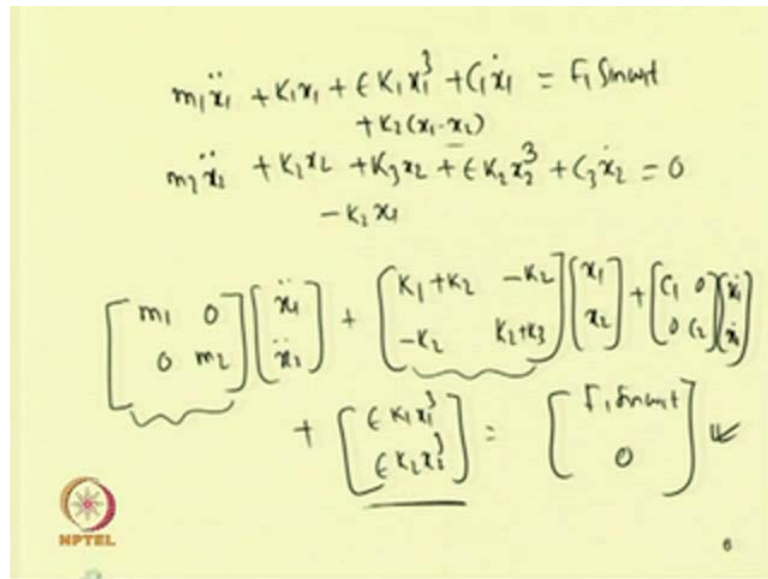 m₁ẍ₁ + K₁x₁ + ϵ K₁x₁³ + C₁ẋ₁ = F₁ Sinω₁t
+ K₂(x₁-x₂)
m₂ẍ₂ + K₂x₂ + K₃x₂ + ϵ K₂x₂³ + C₃ẋ₂ = 0
- K₂x₁
[m₁ 0; 0 m₂] [ẍ₁; ẍ₂] + [K₁+K₂ -K₂; -K₂ K₂+K₃] [x₁; x₂] + [C₁ 0; 0 C₂] [ẋ₁; ẋ₂]
+ [ϵ K₁x₁³; ϵ K₂x₂³] = [F₁ Sinω₁t; 0]
NPTEL
6